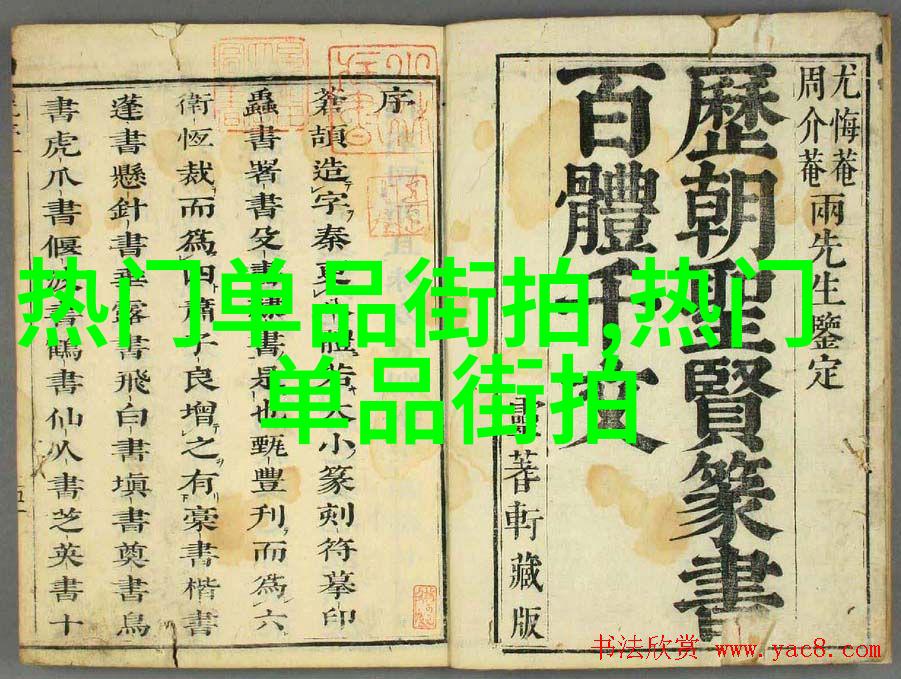 热门单品街拍,热门
单品街拍
尤悔菴
周介菴
兩先生鑒定
歷朝聖賢篆書
百體千文
蓍軒藏版
序
蒼頡造字秦更八體若大小篆刻符摹印
蟲書署書殳書隸書是也甄豐刋而爲六
衛恆裁而爲四蕭子良增之有藁書楷書
蓬書懸針書垂露書飛白書塡書奠書鳥
書虎爪書偃波書鶴書仙人書芝英書十
书法欣赏 www.yac8.com